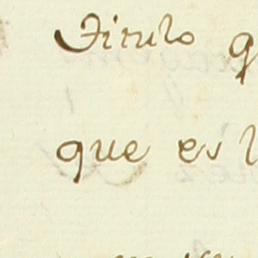 Titulo q
que es l